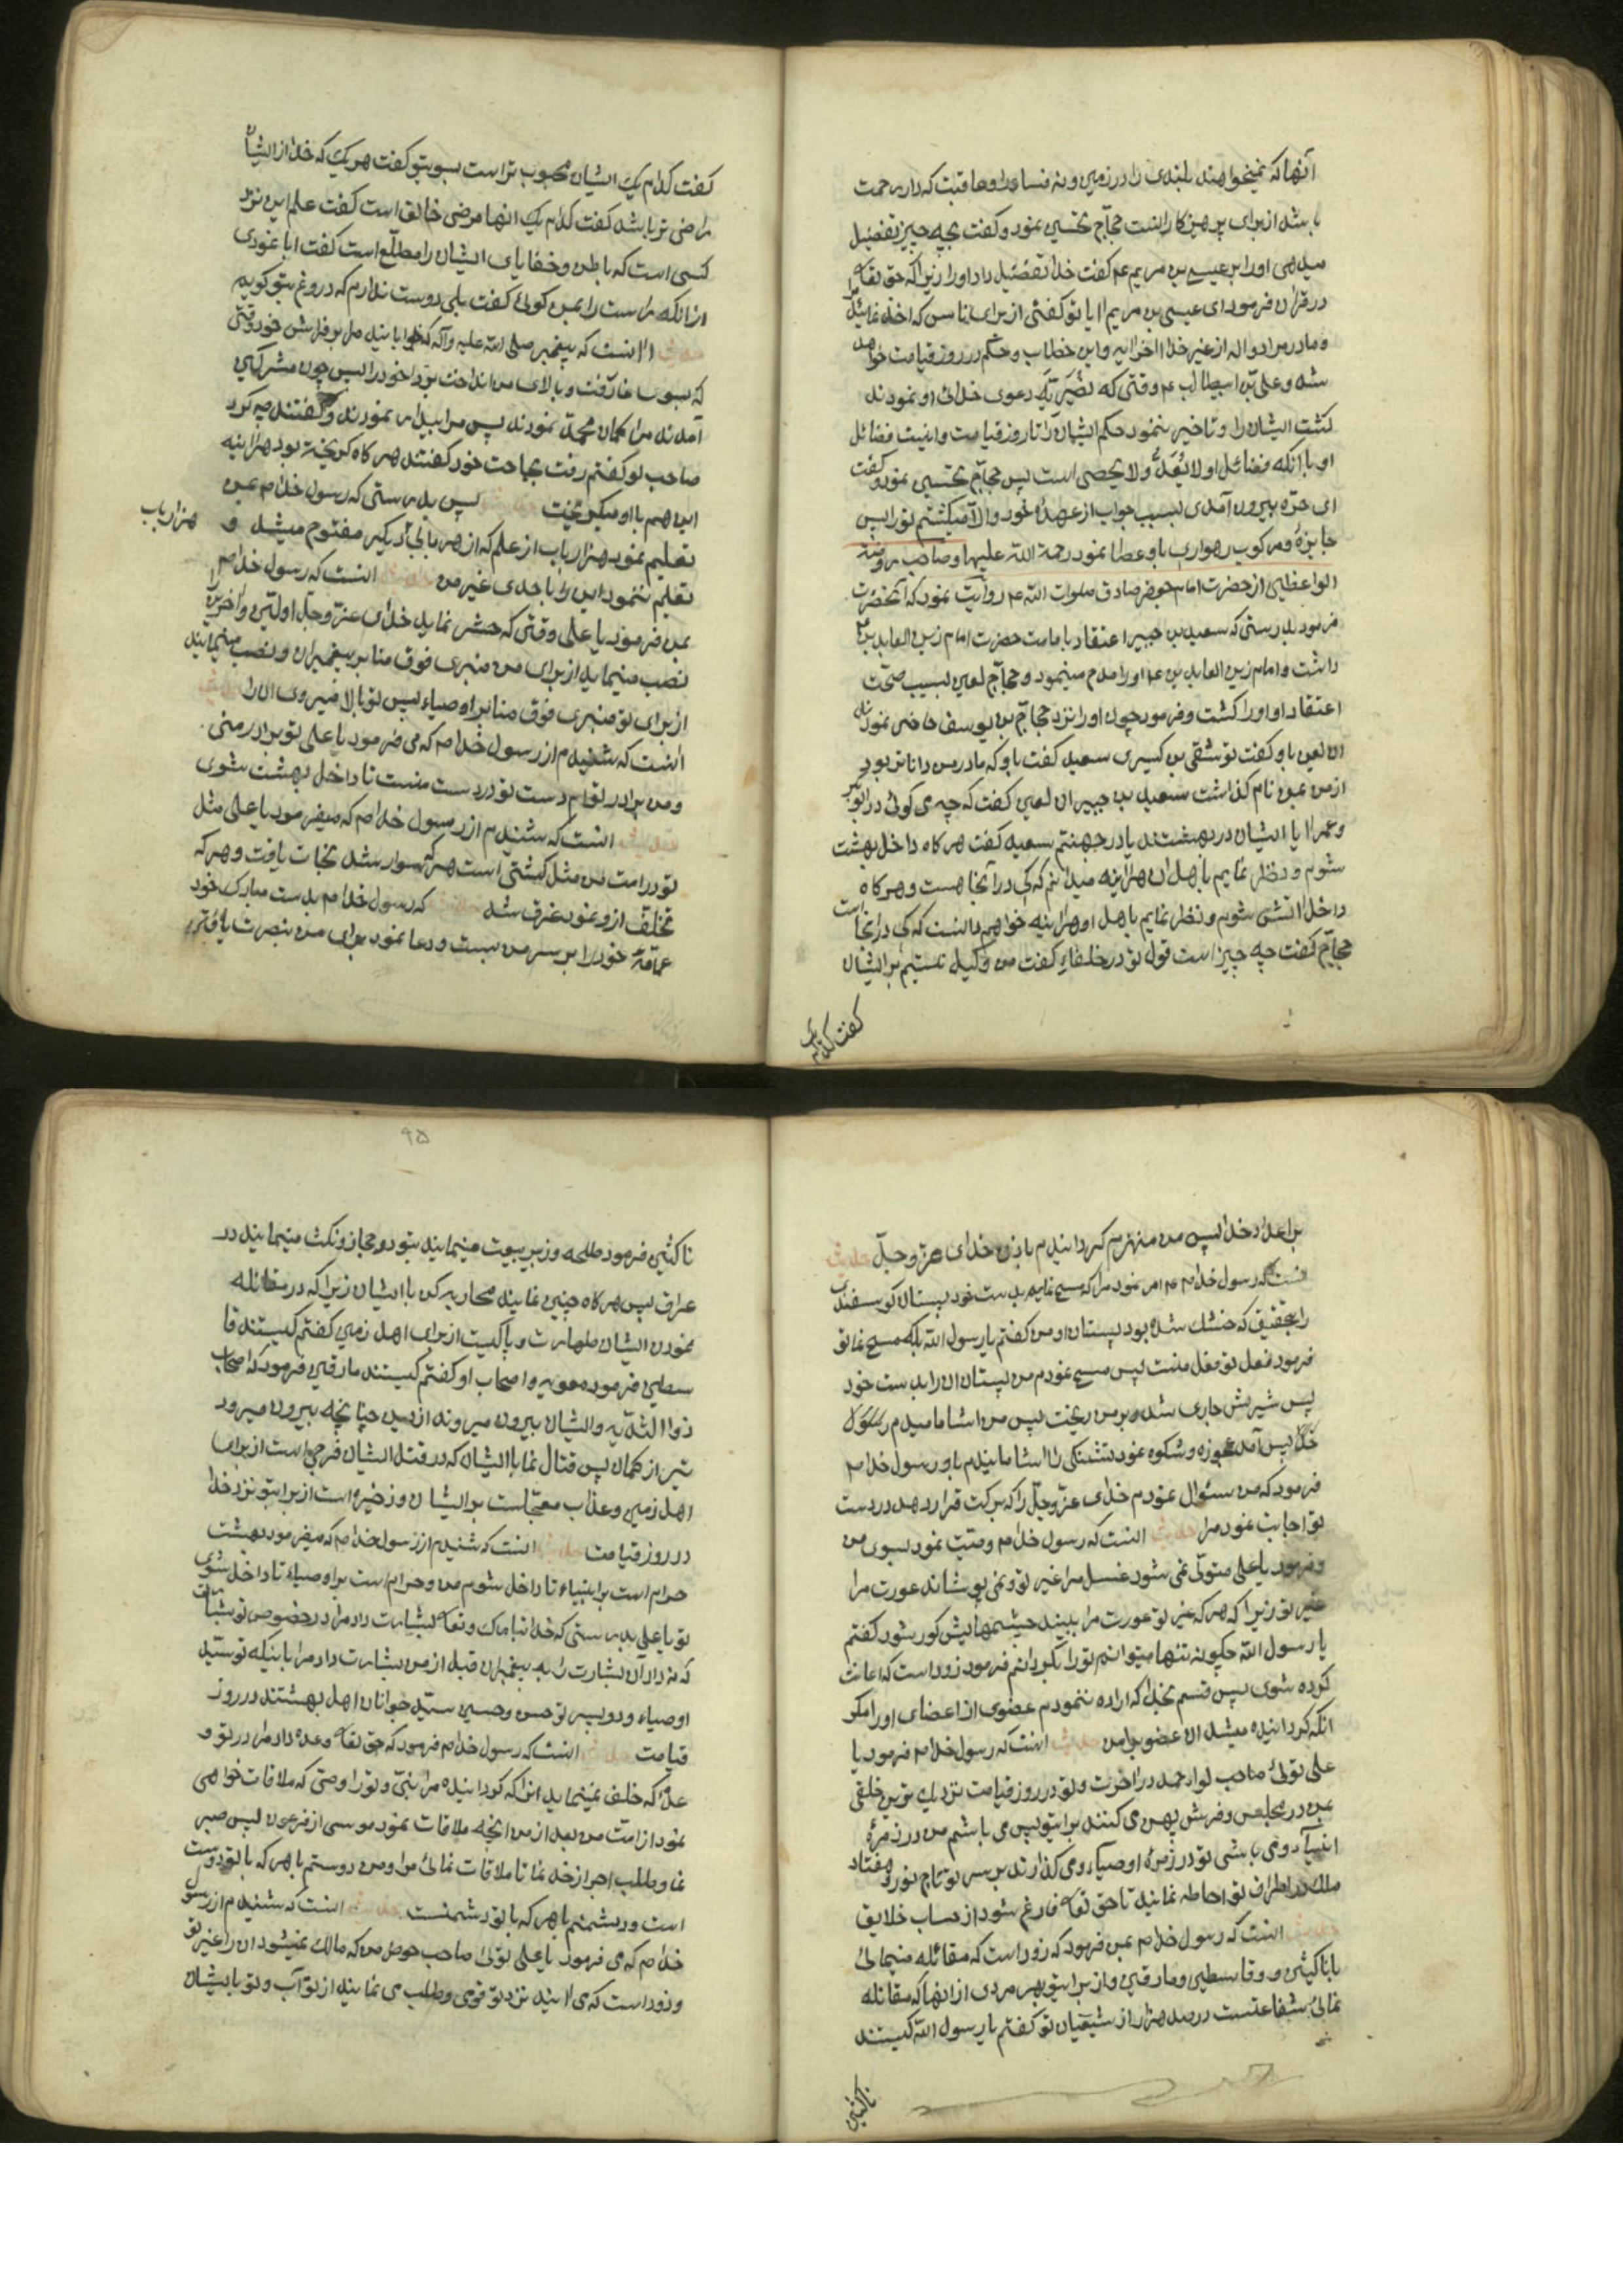 آنها که نمیخواهند بلندی را در زمین و نه فساد را و عاقبت که دار رحمت
باشد از برای پرهیزکارانست حجاج تحسین نمود و کفت بچه چیز تفضیل
میدهی او را بر عیسی بن مریم ع کفت خدا تفضیل داد او را زیرا که حق تعالی
در قران فرمود ای عیسی بن مریم ایا تو کفتی از برای ناس که اخذ نمائید مرا
و مادر مرا دو اله از غیر خدا الی اخر الایه و این خطاب و حکم در روز قیامت خواهد
شد و علی بن ابیطالب ع وقتی که نصیریه دعوی خدائی او نمودند
کشت ایشان را و تاخیر ننمود حکم ایشان را تا روز قیامت و اینست فضائل
او با آنکه فضائل او لا یُعَدُّ و لا یحصی است پس حجاج تحسین نمود و کفت
ای حرّه بیرون آمدی بسبب جواب از عهدهٔ خود و الّا میکشتم تو را پس
جایزهٔ و مرکوب رهواری باو عطا نمود رحمة الله علیها و صاحب روضة
الواعظین از حضرت امام جعفر صادق صلوات الله ع روایت نمود که آنحضرت
فرمود بدرستی که سعید بن جبیر اعتقاد بامامت حضرت امام زین العابدین ع
داشت و امام زین العابدین ع او را مدح مینمود و حجاج لعین بسبب صحّت
اعتقاد او او را کشت و فرمود چون او را نزد حجاج بن یوسف حاضر نمودند
ان لعین باو کفت تو شقی بن کسیری سعید کفت باو که مادر من داناتر بود
از من بمن نام کذاشت سعید بن جبیر ان لعین کفت که چه می کوئی در ابوبکر
و عمر ایا ایشان در بهشتند یا در جهنم سعید کفت هر کاه داخل بهشت
شوم و نظر نمایم باهل ان هراینه میدانم که کی در آنجا هست و هر کاه
داخل اتش شوم و نظر نمایم باهل او هراینه خواهم دانست که کی در انجا است
حجاج کفت چه چیز است قول تو در خلفاء کفت من وکیل نیستم بر ایشان
کفت کدام یک
کفت کدام یک ایشان محبوب تر است بسوی تو کفت هر یک که خدا از ایشان
راضی تر باشد کفت کدام یک انها مرضی خالق است کفت علم این نزد
کسی است که باطن و خفایای ایشان را مطلّع است کفت ابا نمودی
از انکه راست را بمن کوئی کفت بلی دوست ندارم که دروغ بتو کویم
حدیث اینست که پیغمبر صلی الله علیه و آله که خوابانید مرا بر فراش خود وقتی
که بسوی غار رفت و بالای من انداخت برد خود را پس چون مشرکین
آمدند مرا کمان محمد نمودند پس مرا بیدار نمودند و کفتند چه کرد
صاحب تو کفتم رفت بحاجت خود کفتند هر کاه کریخته بود هراینه
این هم با او میکریخت حدیث پس بدرستی که رسول خدا ص بمن
تعلیم نمود هزار باب از علم که از هر بابی دیکر مفتوح میشد و
هزار باب
تعلیم ننمود این را باحدی غیر من حدیث اینست که رسول خدا ص
بمن فرمود یا علی وقتی که حشر نماید خدای عزّ و جلّ اولین و اخرین را
نصب مینماید از برای من منبری فوق منابر پیغمبران و نصب مینماید
از برای تو منبری فوق منابر اوصیاء پس تو بالا میروی ان را حدیث
اینست که شنیدم از رسول خدا ص که می فرمود یا علی تو برادر منی
و من برادر توام دست تو در دست منست تا داخل بهشت شوی
حدیث اینست که شنیدم از رسول خدا ص که میفرمود یا علی مثل
تو در امت من مثل کشتی است هر که سوار شد نجات یافت و هر که
تخلّف از او نمود غرق شد حدیث که رسول خدا ص بدست مبارک خود
عمّامهٔ خود را بر سر من بست و دعا نمود برای من بنصرت یافتن
بر اعداء خدا پس من منهزم کردانیدم باذن خدای عزّ و جلّ حدیث
اینست که رسول خدا ص امر نمود مرا که مسح نمایم بدست خود پستان کوسفند
را بتحقیق که خشک شده بود پستان او من کفتم یا رسول الله بلکه مسح نما تو
فرمود فعل تو فعل منست پس مسح نمودم من پستان ان را بدست خود
پس شیرش جاری شد و بر من ریخت پس من اشامانیدم رسول
خدا پس آمد عجوزه و شکوه نمود تشنکی را اشامانیدم باو رسول خدا ص
فرمود که من سئوال نمودم خدای عزّ و جلّ را که برکت قرار دهد در دست
تو اجابت نمود مرا حدیث اینست که رسول خدا ص وصیّت نمود بسوی من
و فرمود یا علی متولّی نمی شود غسل مرا غیر تو و نمی پوشاند عورت مرا
غیر تو زیرا که هر که غیر تو عورت مرا ببیند چشمهایش کور شود کفتم
یا رسول الله چکونه تنها میتوانم تو را بکردانم فرمود زود است که اعانت
کرده شوی پس قسم بخدا که اراده ننمودم عضوی از اعضای او را مکر
انکه کردانیده میشد ان عضو برای من حدیث اینست که رسول خدا ص فرمود یا
علی توئی صاحب لواء حمد در اخرت و تو در روز قیامت نزدیک ترین خلقی
بمن در مجلس و فرش پهن می کنند برای تو پس می باشم من در زمرهٔ
انبیاء و می باشی تو در زمرهٔ اوصیاء و می کذارند بر سر تو تاج نور و هفتاد
ملک در اطراف تو احاطه نمایند تا حق تعالی فارغ شود از حساب خلایق
حدیث اینست که رسول خدا ص بمن فرمود که زود است که مقاتله مینمائی
با ناکثین و قاسطین و مارقین و از برای تو بهر مردی از انها که مقاتله
نمائی شفاعتست در صد هزار از شیعیان تو کفتم یا رسول الله کیستند
ناکثین
۹۵
ناکثین فرمود طلحه و زبیر بیعت مینمایند بتو در حجاز و نکث مینمایند در
عراق پس هر کاه چنین نمایند محاربه کن با ایشان زیرا که در مقاتله
نمودن ایشان طهارت و پاکیست از برای اهل زمین کفتم کیستند قا
سطین فرمود معویه و اصحاب او کفتم کیستند مارقین فرمود که اصحاب
ذو الثدیه و ایشان بیرون میروند از دین چنانچه بیرون میرود
تیر از کمان پس قتال نما با ایشان که در قتل ایشان فرجی است از برای
اهل زمین و عذاب معجّلست بر ایشان و ذخیره است از برای تو نزد خدا
در روز قیامت حدیث اینست که شنیدم از رسول خدا ص که میفرمود بهشت
حرام است بر انبیاء تا داخل شوم من و حرام است بر اوصیاء تا داخل شوی
تو یا علی بدرستی که خدا تبارک و تعالی بشارت داد مرا در خصوص تو بشارت
که نداد آن بشارت را به پیغمبران قبل از من بشارت داد مرا باینکه تو سیّد
اوصیاء و دو پسر تو حسن و حسین سیّد جوانان اهل بهشتند در روز
قیامت حدیث اینست که رسول خدا ص فرمود که حق تعالی وعده داد مرا در تو و
عدهٔ که خلف نمینماید انرا که کردانیده مرا بنبی و تو را وصی که ملاقات خواهی
نمود از امت من بعد از من انچه ملاقات نمود موسی از فرعون پس صبر
نما و طلب اجر از خدا نما تا ملاقات نمائی مرا و من دوستم با هر که با تو دوست
است و دشمنم با هر که با تو دشمنست حدیث اینست که شنیدم از رسول
خدا ص که می فرمود یا علی توئی صاحب حوض من که مالک نمیشود ان را غیر تو
و زود است که می ایند نزد تو قومی و طلب می نمایند از تو آب و تو بایشان